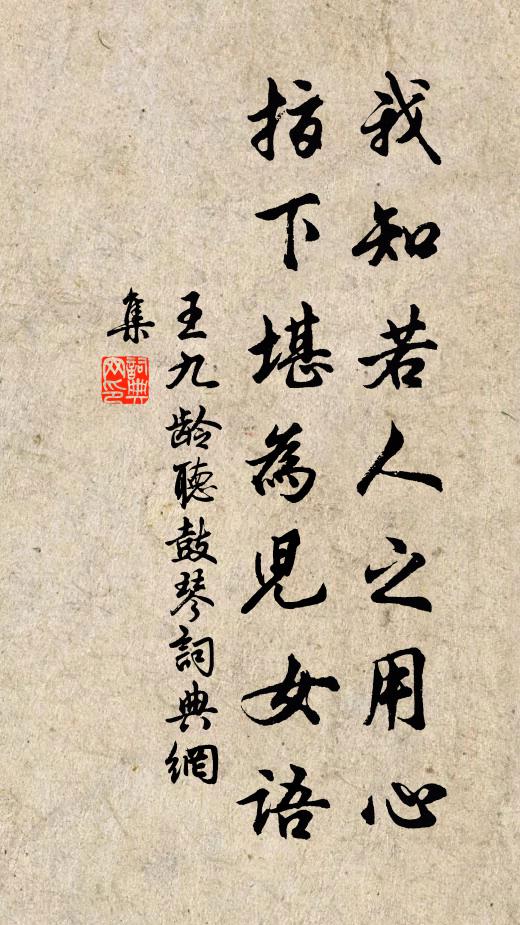 我知若人之用心
指下堪為兒女語
王九齡聽鼓琴詞典網
集
詞典
网印